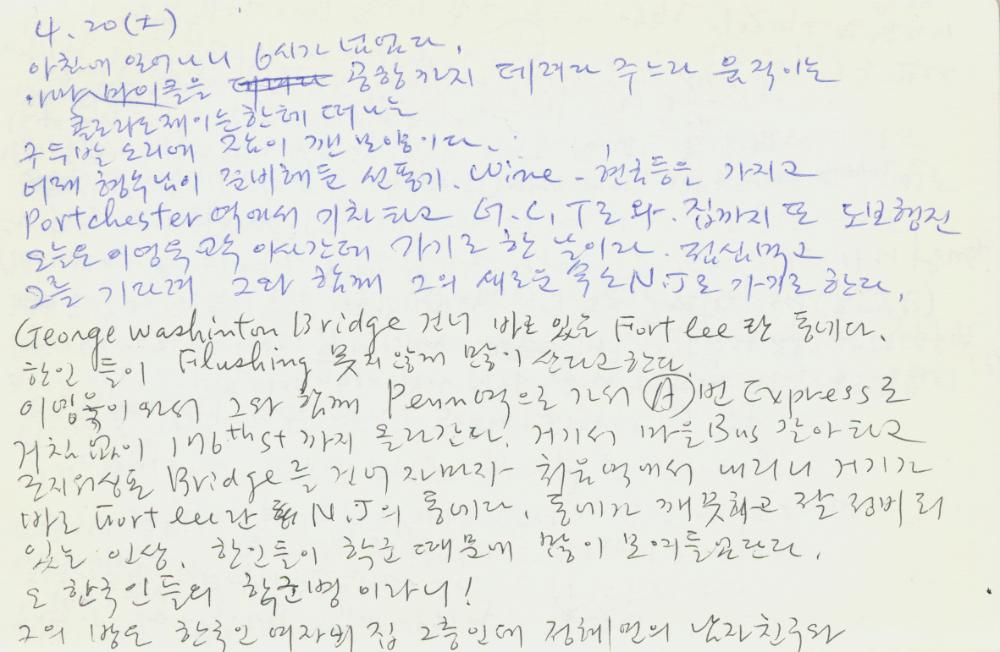 4.20(土)
아침에 일어나니 6시가 넘었다.
아빠 마이클을 공항까지 데려다 주느라 움직이는
콜로라도 제이슨한테 떠나는
구두발 소리에 잠이 깬 모양이다.
어제 형수님이 준비해둔 선풍기. Wine - 현금등을 가지고
Portchester 역에서 기차타고 G.C.T로 와. 집까지 또 도보행진
오늘은 이영욱 교수 아시간데 가기로 한 날이라. 점심먹고
그를 기다려 그와 함께 그의 새로운 숙소 N.J로 가기로 한다.
George washinton Bridge 건너 바로 있는 Fort lee란 동네다.
한인들이 Flushing 못지않게 많이 산다고한다.
이영욱이 와서 그와 함께 Penn역으로 가서 Ⓐ번 Express로
거침없이 176th st 까지 올라간다. 거기서 마을Bus 갈아타고
죠지와싱톤 Bridge를 건너자마자 처음역에서 내리니 거기가
바로 Fort lee란 N.J의 동네다. 동네가 깨끗하고 잘 정비되
있는 인상. 한인들이 학군 때문에 많이 모여들었단다.
또 한국인들의 학군병 이라니!
그의 방은 한국인 여자의 집 2층인데 정혜면의 남자친구와